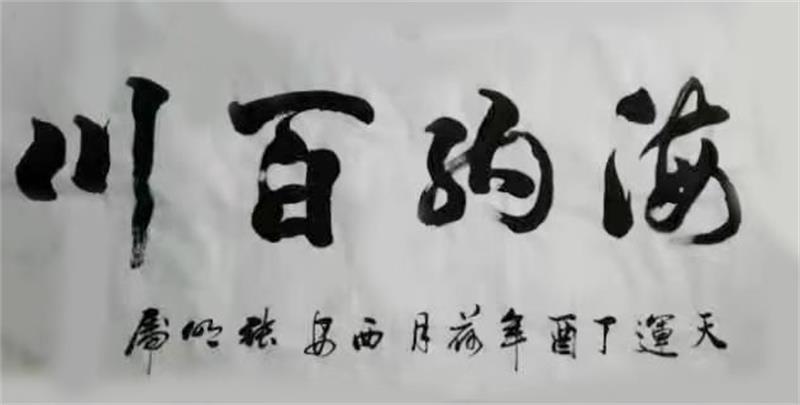 海纳百川
天運丁酉年荷月西安張明